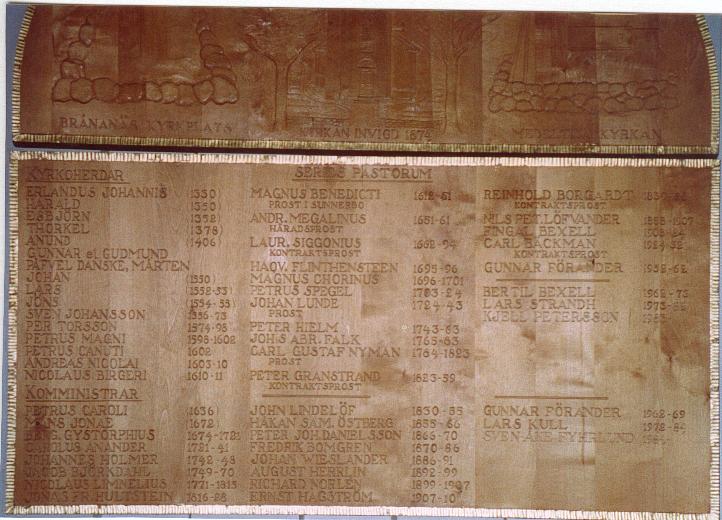 BRÅNANÄS KYRKPLATS
KYRKAN INVIGD 1874
KYRKAN
KYRKOHERDAR
SERIES PASTORUM
ERLANDUS JOHANNIS 1330
HARALD 1350
ESBJÖRN 1352
THORKEL 1378
ANUND 1406
GUNNAR el GUDMUND
PAFVEL DANSKE, MÅRTEN
JOHAN 1550
LARS 1552-53
JÖNS 1554-55
SVEN JOHANSSON 1556-73
PER TORSSON 1574-98
PETRUS MAGNI 1598-1602
PETRUS CANUTI 1602
ANDREAS NICOLAI 1603-10
NICOLAUS BIRGERI 1610-11
MAGNUS BENEDICTI 1612-51
PROST I SUNNERBO
ANDR. MEGALINUS 1651-61
HÄRADSPROST
LAUR. SIGGONIUS 1662-94
KONTRAKTSPROST
HAQV. FLINTHENSTEEN 1695-96
MAGNUS CHORINUS 1696-1701
PETRUS SPEGEL 1703-24
JOHAN LUNDE 1724-43
PROST
PETER HIELM 1743-63
JOHS ABR. FALK 1765-83
CARL GUSTAF NYMAN 1784-1823
PROST
PETER GRANSTRAND 1823-39
KONTRAKTSPROST
REINHOLD BORGARDT
KONTRAKTSPROST
NILS PET. LÖFVANDER 1888-1907
FINGAL BEXELL
CARL BACKMAN
KONTRAKTSPROST
GUNNAR FÖRANDER 1952-62
BERTIL BEXELL 1962-73
LARS STRANDH
KJELL PETERSSON
KOMMINISTRAR
PETRUS CAROLI 1636
MÅNS JONAE 1672
BENG. GYSTORPHIUS 1674-1721
CAROLUS ANANDER 1721-41
JOHANNES HOLMER 1742-48
JACOB BJÖRKDAHL 1749-70
NICOLAUS LIMNELIUS 1771-1815
JONAS FR. HULTSTEIN 1816-28
JOHN LINDELÖF 1830-55
HÅKAN SAM. ÖSTBERG 1855-66
PETER JOH. DANIELSSON 1866-70
FREDRIK BOMGREN 1870-86
JOHAN WIESLANDER 1886-91
AUGUST HERRLIN 1892-99
RICHARD NORLÉN 1899-1907
ERNST HAGSTRÖM 1907-10
GUNNAR FÖRANDER 1962-69
LARS KULL
SVEN-ÅKE FYHRLUND